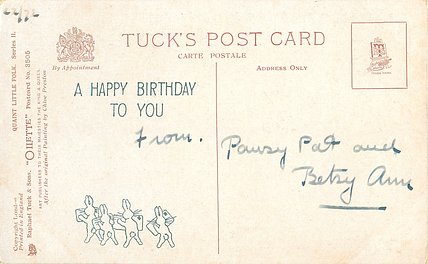 TUCK'S POST CARD
CARTE POSTALE
By Appointment
ADDRESS ONLY
A HAPPY BIRTHDAY
TO YOU
From.
Pansy Pat and
Betsy Ann
QUAINT LITTLE FOLK. Series II.
"OILETTE" Postcard No. 3505
Raphael Tuck & Sons.
ART PUBLISHERS TO THEIR MAJESTIES THE KING & QUEEN
After the original Painting by Chloe Preston
Copyright London
Printed in England